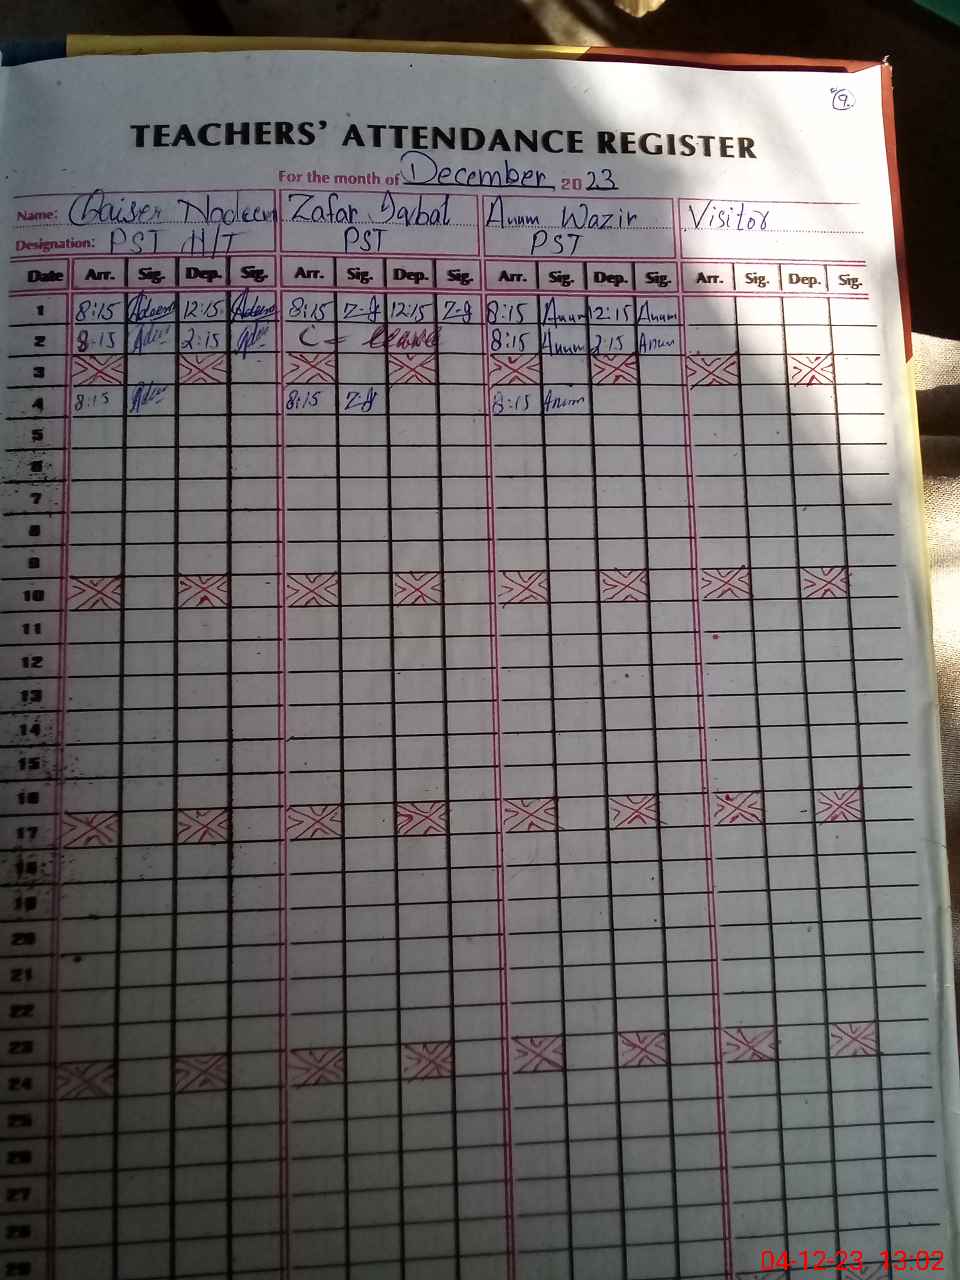 9
TEACHERS' ATTENDANCE REGISTER
For the month of December 2023
Name: Qaiser Nadeem Zafar Iqbal Anum Wazir Visitor
Designation: PST H/T PST PST
Date Arr. Sig. Dep. Sig. Arr. Sig. Dep. Sig. Arr. Sig. Dep. Sig. Arr. Sig. Dep. Sig.
1 8:15 12:15 8:15 Z-J 12:15 Z-J 8:15 Anum 12:15 Anum
2 8:15 2:15 C - leave 8:15 Anum 2:15 Anum
3
4 8:15 8:15 Z-J 8:15 Anum
5
6
7
8
9
10
11
12
13
14
15
16
17
18
19
20
21
22
23
24
25
26
27
28
29
04-12-23, 13:02